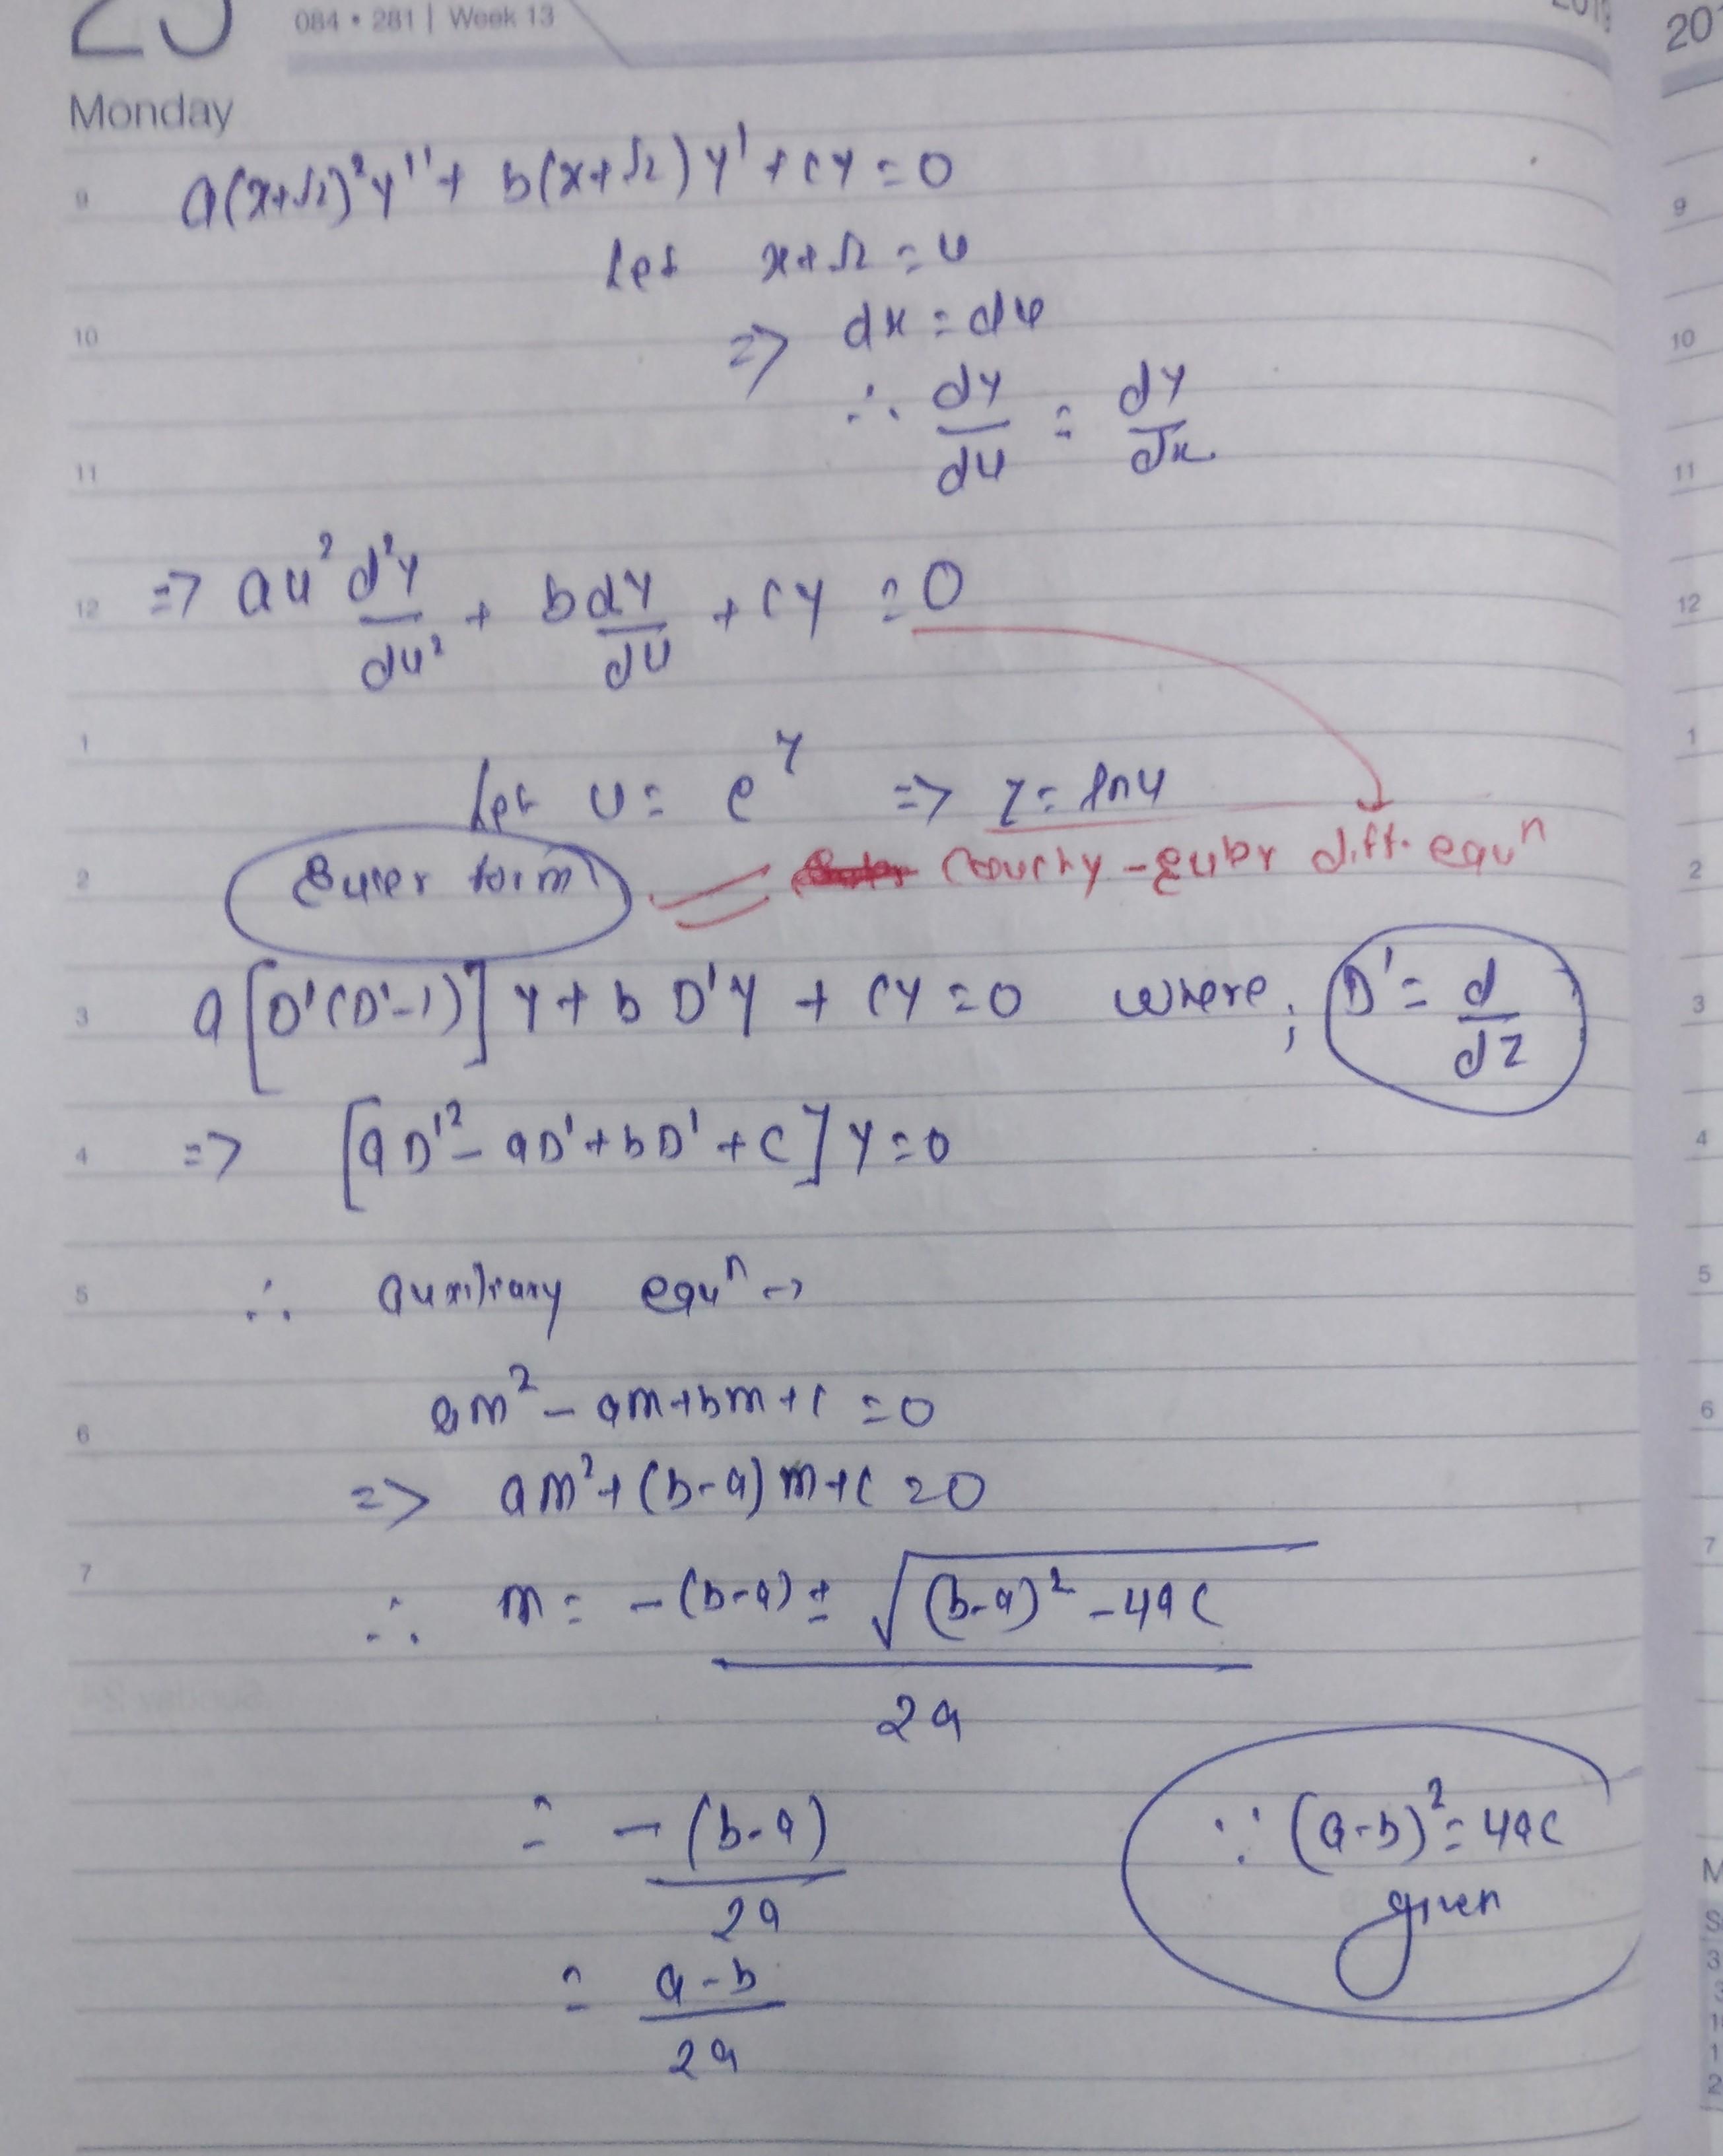 084 • 281 | Week 13
Monday
a(x+√2)²y'' + b(x+√2)y' + cy = 0
Let x+√2 = u
=> dx = du
∴ dy/du = dy/dx
=> au² d²y/du² + b dy/du + cy = 0
Let u = e^z => z = ln u
Euler form Cauchy-Euler diff. equⁿ
a[D'(D'-1)]y + b D'y + cy = 0 where; D' = d/dz
=> [aD'² - aD' + bD' + c]y = 0
∴ auxiliary equⁿ ->
am² - am + bm + c = 0
=> am² + (b-a)m + c = 0
∴ m = -(b-a) ± √(b-a)² - 4ac / 2a
= -(b-a)/2a
∵ (a-b)² = 4ac
given
= a-b/2a
20
9
10
11
12
1
2
3
4
5
6
7
9
10
11
12
1
2
3
4
5
6
7
M
S
3